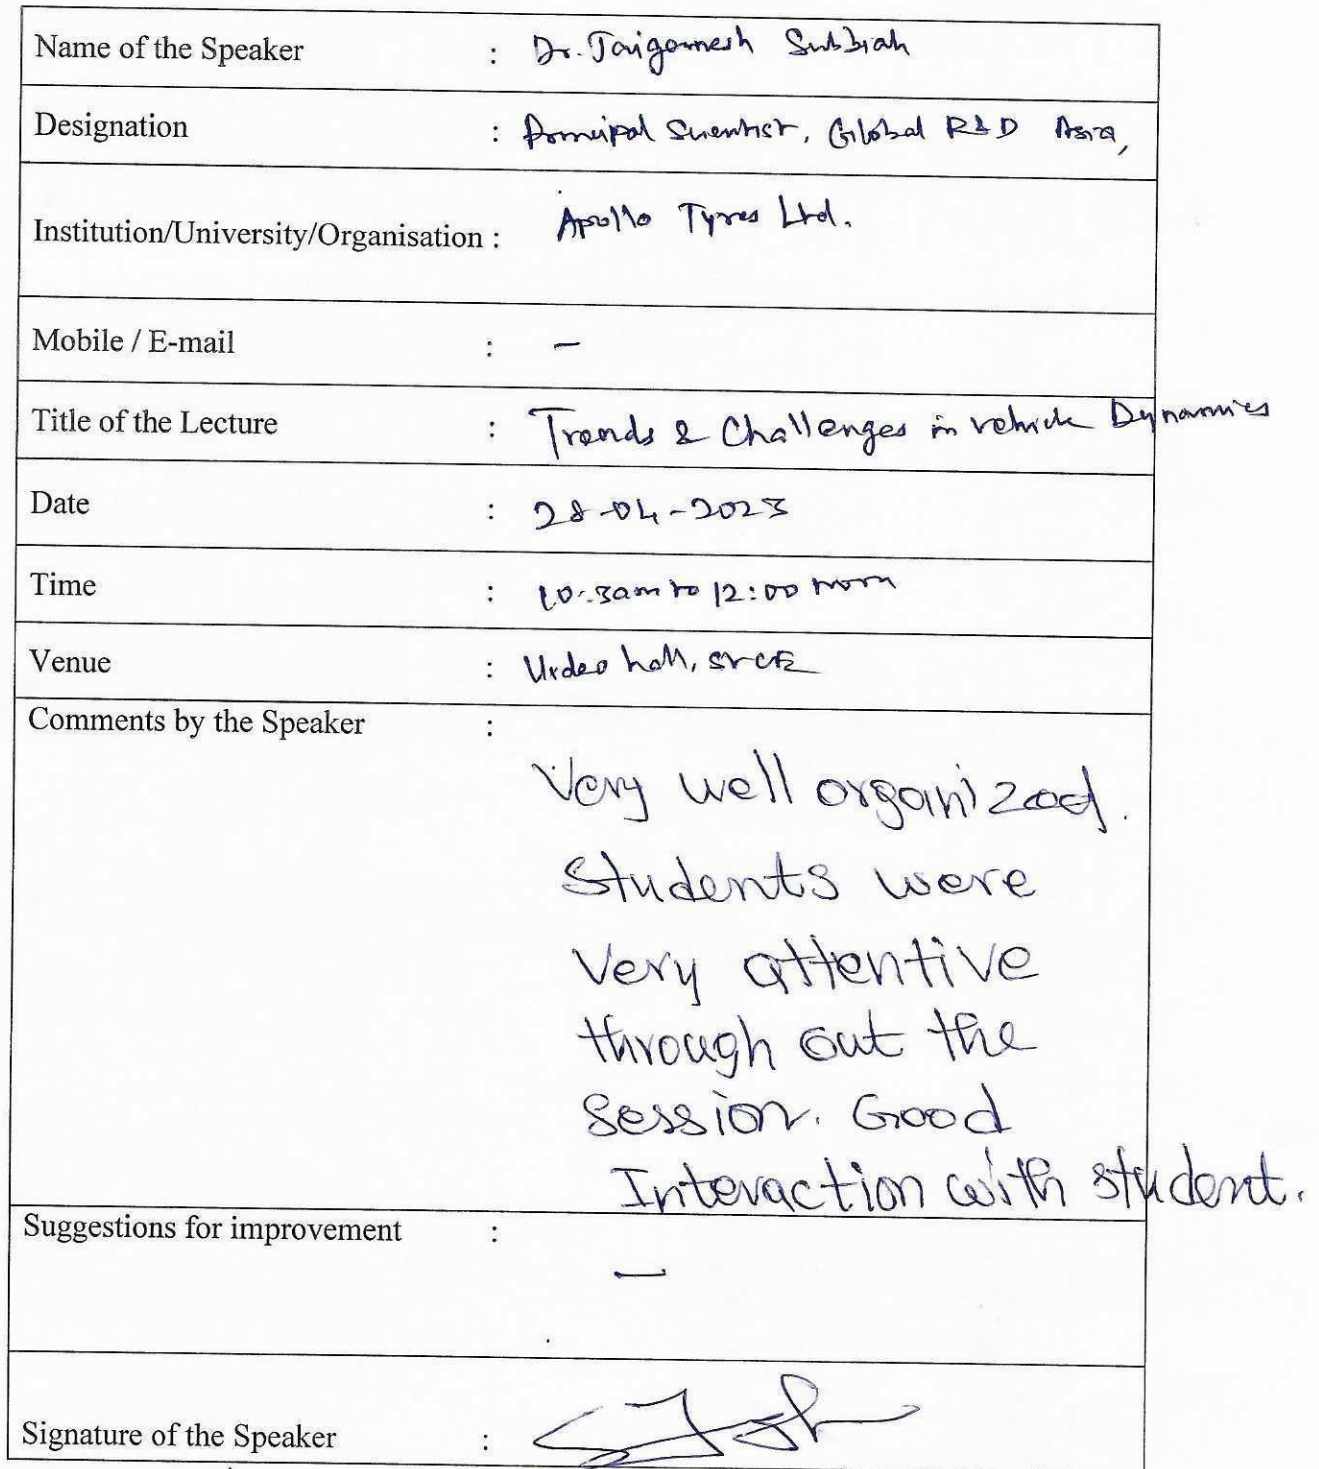 Name of the Speaker : Dr. Jaiganesh Subbiah
Designation : Principal Scientist, Global R&D Asia,
Institution/University/Organisation : Apollo Tyres Ltd.
Mobile / E-mail : –
Title of the Lecture : Trends & Challenges in vehicle Dynamics
Date : 28-04-2023
Time : 10:30am to 12:00 noon
Venue : Video hall, SVCE
Comments by the Speaker :
Very well organized.
Students were
Very attentive
through out the
Session. Good
Interaction with student.
Suggestions for improvement :
–
Signature of the Speaker :